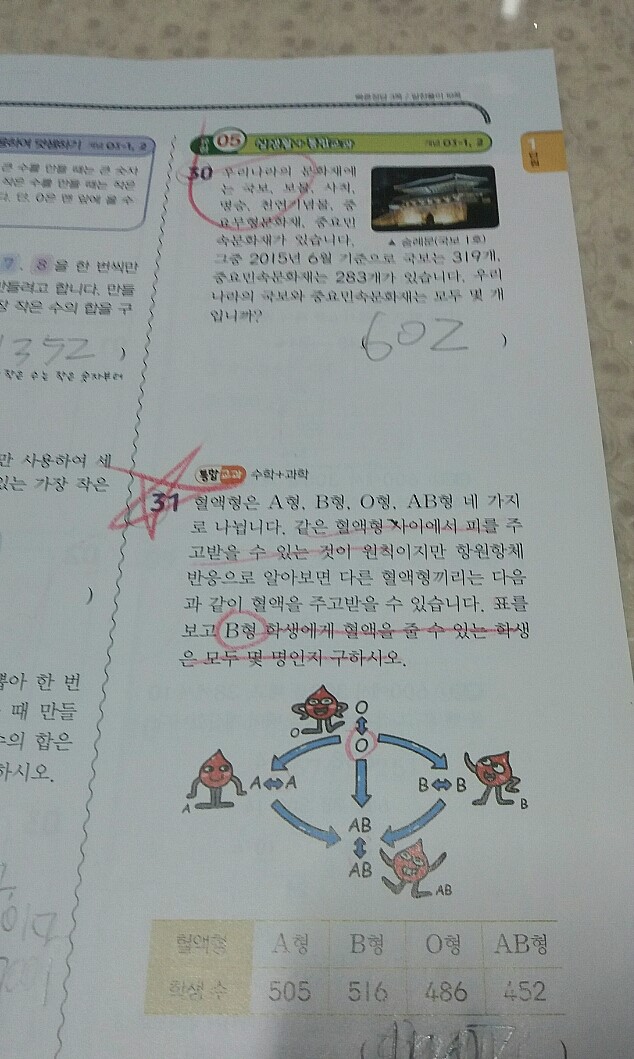 개념 03-1, 2
큰 수를 만들 때는 큰 숫자
작은 수를 만들 때는 작은
다. 단, 0은 맨 앞에 올 수
7, 8 을 한 번씩만
만들려고 합니다. 만들
장 작은 수의 합을 구
1352 )
작은 수는 작은 숫자부터
만 사용하여 세
있는 가장 작은
)
뽑아 한 번
때 만들
수의 합은
하시오.
1 단원
05 개념 03-1, 2
30 우리나라의 문화재에
는 국보, 보물, 사적,
명승, 천연기념물, 중
요무형문화재, 중요민
속문화재가 있습니다.
▲ 숭례문(국보 1호)
그중 2015년 6월 기준으로 국보는 319개,
중요민속문화재는 283개가 있습니다. 우리
나라의 국보와 중요민속문화재는 모두 몇 개
입니까?
( 602 )
통합교과 수학+과학
31 혈액형은 A형, B형, O형, AB형 네 가지
로 나뉩니다. 같은 혈액형 사이에서 피를 주
고받을 수 있는 것이 원칙이지만 항원항체
반응으로 알아보면 다른 혈액형끼리는 다음
과 같이 혈액을 주고받을 수 있습니다. 표를
보고 B형 학생에게 혈액을 줄 수 있는 학생
은 모두 몇 명인지 구하시오.
O O
O
A A A
B B B
AB
AB AB
혈액형 A형 B형 O형 AB형
학생 수 505 516 486 452